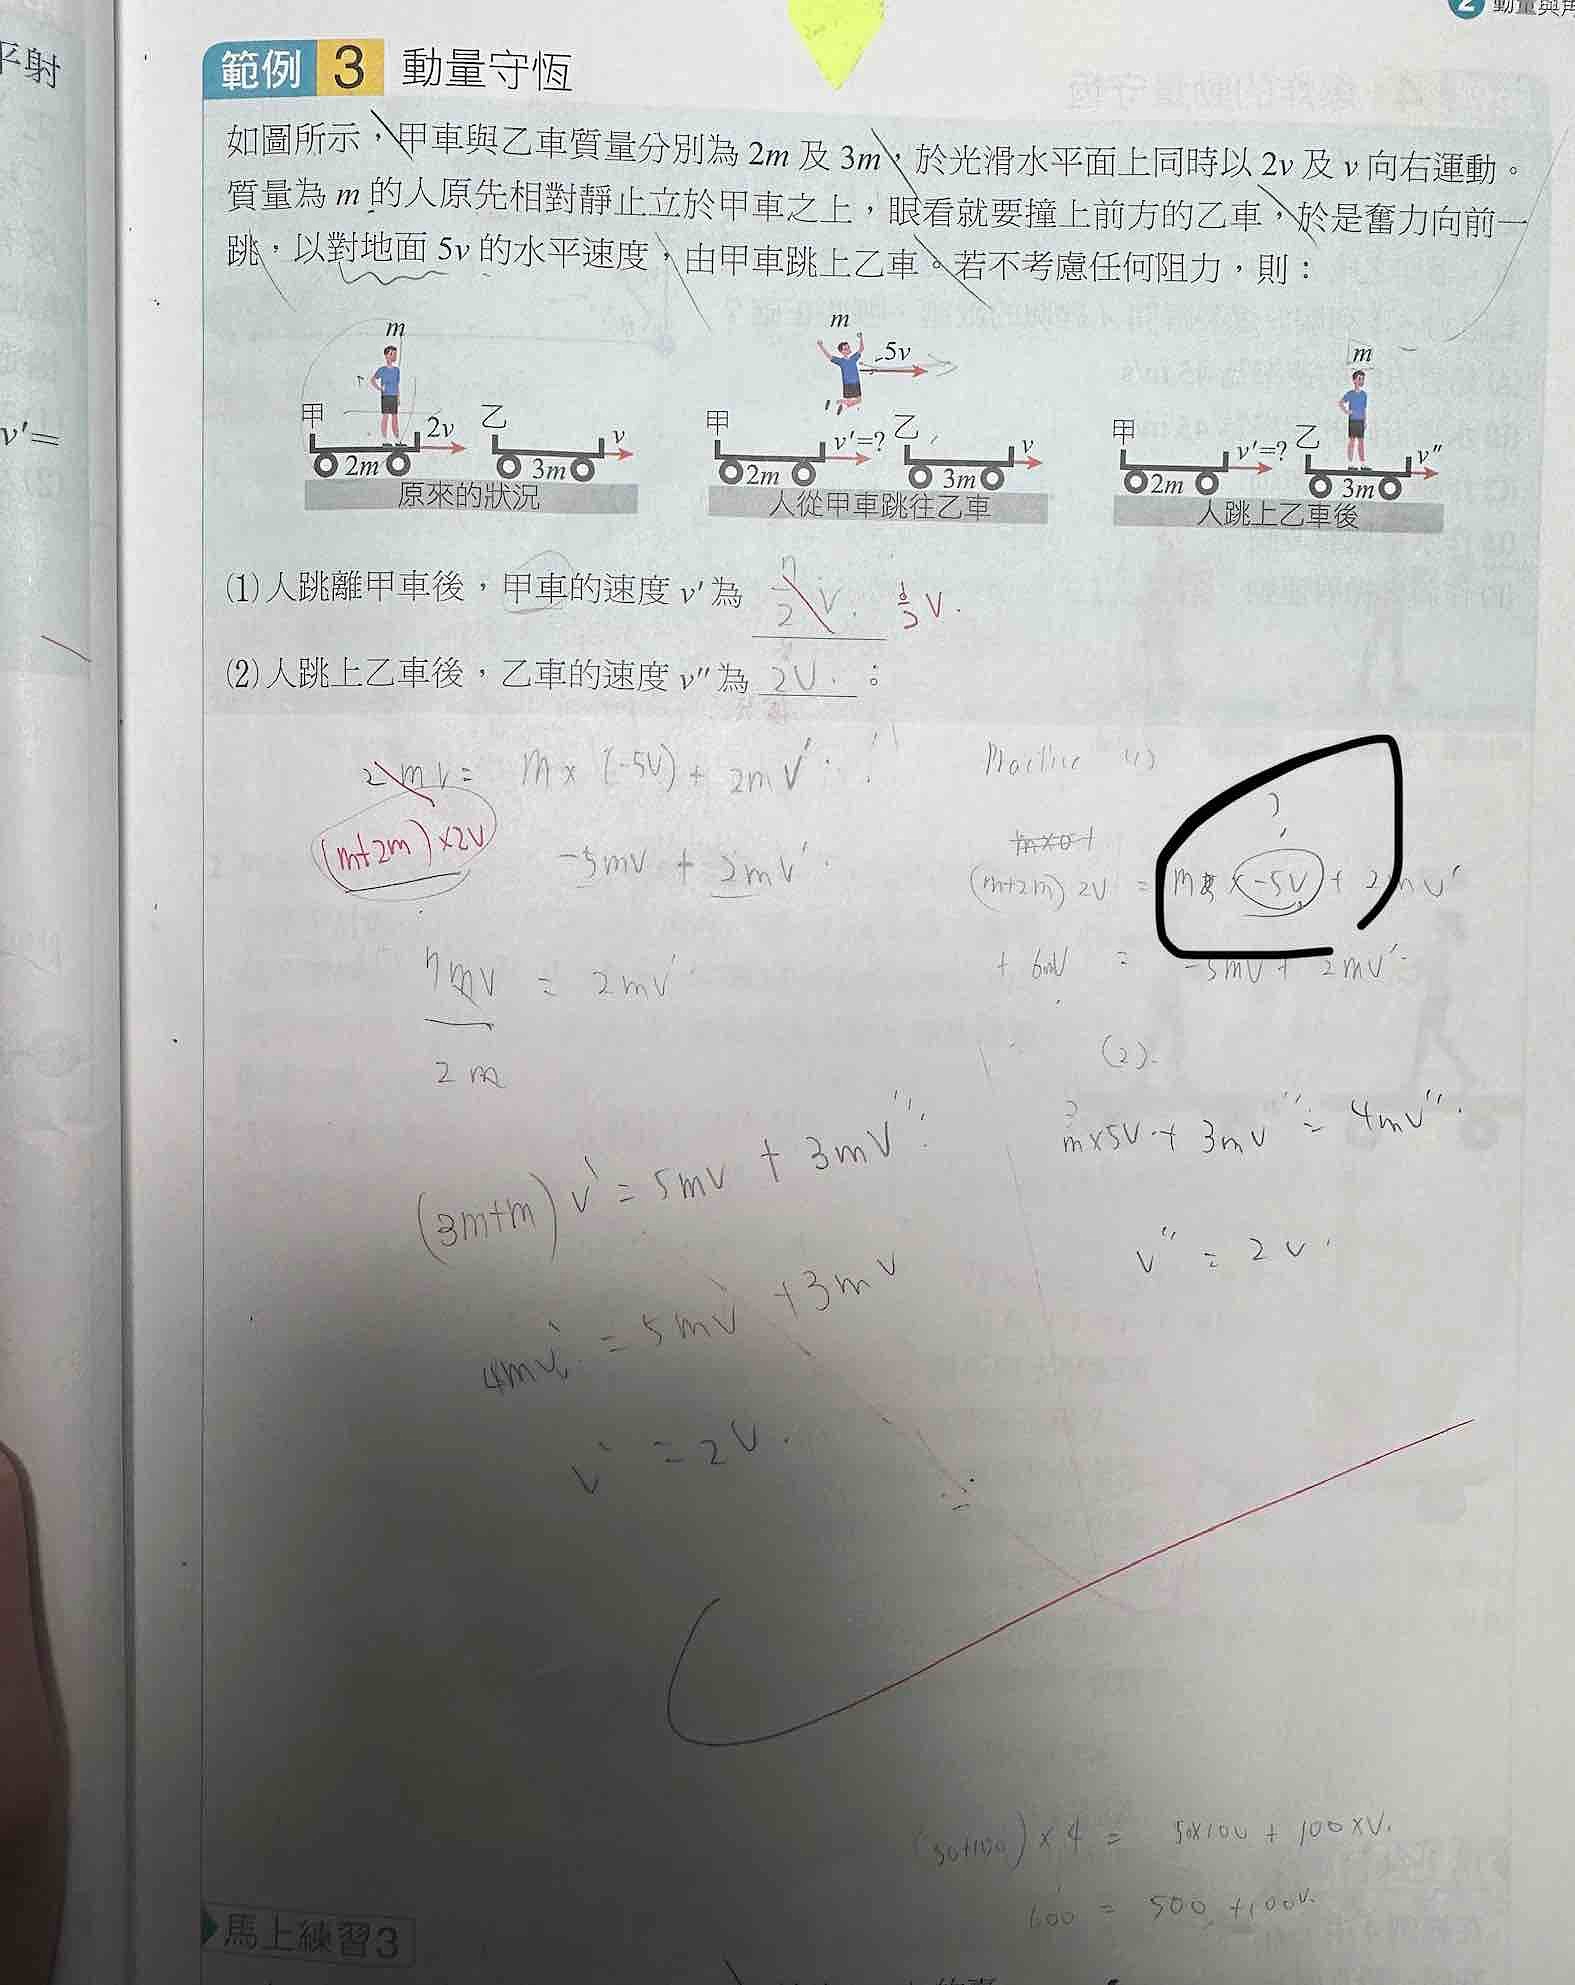 2 動量與角
平射
v'=
範例 3 動量守恆
如圖所示，甲車與乙車質量分別為 2m 及 3m，於光滑水平面上同時以 2v 及 v 向右運動。
質量為 m 的人原先相對靜止立於甲車之上，眼看就要撞上前方的乙車，於是奮力向前一
跳，以對地面 5v 的水平速度，由甲車跳上乙車。若不考慮任何阻力，則：
m
甲 2v 乙 v
2m 3m
原來的狀況
m
5v
甲 v'=? 乙 v
2m 3m
人從甲車跳往乙車
m
甲 v'=? 乙 v"
2m 3m
人跳上乙車後
(1)人跳離甲車後，甲車的速度 v' 為 7/2 V. 1/2 V.
(2)人跳上乙車後，乙車的速度 v" 為 2V. 。
2mv = m×(-5V) + 2mV'
(m+2m)×2V
-5mV + 2mV'
7mV = 2mV'
2m
(3m+m)V' = 5mV + 3mV"
4mV' = 5mV + 3mV
V' = 2V.
(1)
m×0+
(m+2m) 2V = m × (-5V) + 2mV'
+ 6mV = -5mV + 2mV'
(2).
m×5V + 3mV" = 4mV"
V" = 2V
(50+100)×4 = 50×10V + 100×V.
600 = 500 + 100V.
馬上練習3